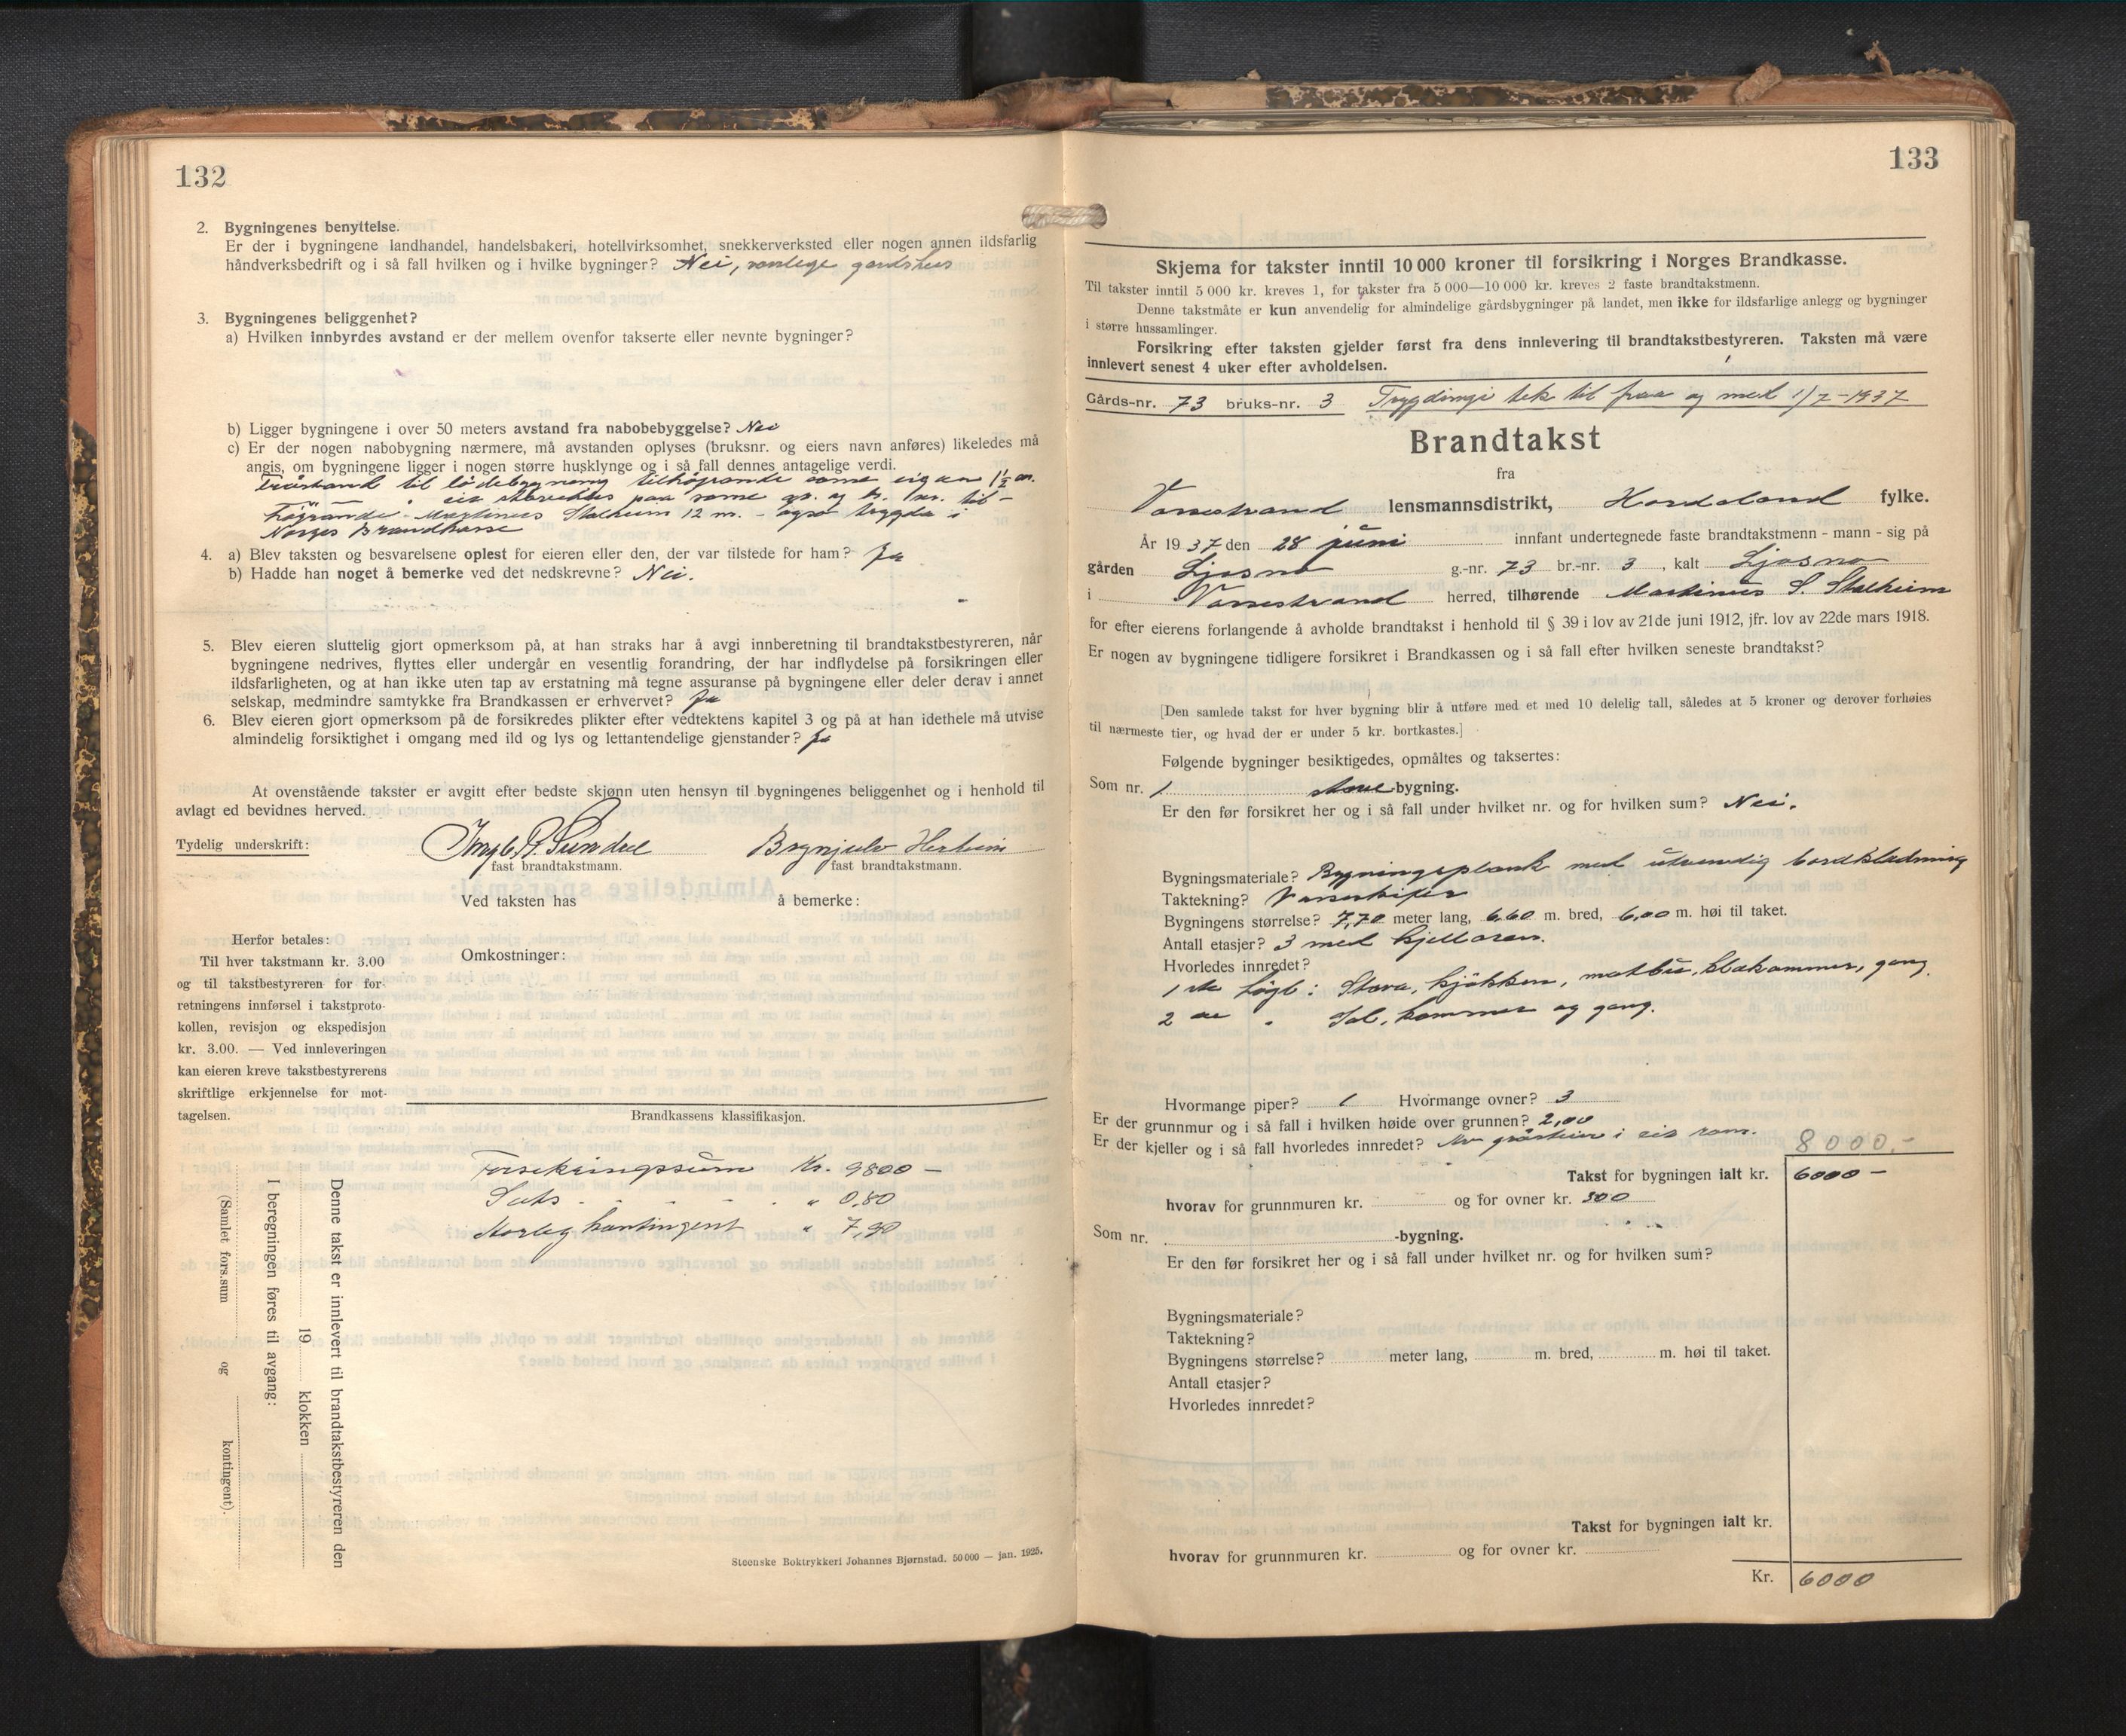 132
2. Bygningenes benyttelse.
Er der i bygningene landhandel, handelsbakeri, hotellvirksomhet, snekkerverksted eller nogen annen ildsfarlig
håndverksbedrift og i så fall hvilken og i hvilke bygninger? Nei, vanlege gardshus
3. Bygningenes beliggenhet?
a) Hvilken innbyrdes avstand er der mellem ovenfor takserte eller nevnte bygninger?
b) Ligger bygningene i over 50 meters avstand fra nabobebyggelse? Nei
c) Er der nogen nabobygning nærmere, må avstanden oplyses (bruksnr. og eiers navn anføres) likeledes må
angis, om bygningene ligger i nogen større husklynge og i så fall dennes antagelige verdi.
Fråstand til lödebygning tilhøyrande same eigar 1½ m.
" " eit stovehus paa same gr. og br. nr. til-
høyrande Martinus Stalheim 12 m. - ogso trygda i
Norges Brandkasse
4. a) Blev taksten og besvarelsene oplest for eieren eller den, der var tilstede for ham? Ja
b) Hadde han noget å bemerke ved det nedskrevne? Nei.
5. Blev eieren sluttelig gjort opmerksom på, at han straks har å avgi innberetning til brandtakstbestyreren, når
bygningene nedrives, flyttes eller undergår en vesentlig forandring, der har indflydelse på forsikringen eller
ildsfarligheten, og at han ikke uten tap av erstatning må tegne assuranse på bygningene eller deler derav i annet
selskap, medmindre samtykke fra Brandkassen er erhvervet? Ja
6. Blev eieren gjort opmerksom på de forsikredes plikter efter vedtektens kapitel 3 og på at han idethele må utvise
almindelig forsiktighet i omgang med ild og lys og lettantendelige gjenstander? Ja
At ovenstående takster er avgitt efter bedste skjønn uten hensyn til bygningenes beliggenhet og i henhold til
avlagt ed bevidnes herved.
Tydelig underskrift: Ingb. R. Sundve Brynjulv Herheim
fast brandtakstmann. fast brandtakstmann.
Ved taksten has å bemerke:
Herfor betales:
Til hver takstmann kr. 3.00
og til takstbestyreren for for-
retningens innførsel i takstproto-
kollen, revisjon og ekspedisjon
kr. 3.00. — Ved innleveringen
kan eieren kreve takstbestyrerens
skriftlige erkjennelse for mot-
tagelsen.
Omkostninger:
Brandkassens klassifikasjon.
Forsikringssum Kr. 9800 –
Sats - - - - " 0,80
Aarleg kontingent " 7,90
Denne takst er innlevert til brandtakstbestyreren den
19 klokken
I beregningen føres til avgang:
(Samlet fors.sum og kontingent).
Steenske Boktrykkeri Johannes Bjørnstad. 50 000 — jan. 1925.
133
Skjema for takster inntil 10 000 kroner til forsikring i Norges Brandkasse.
Til takster inntil 5 000 kr. kreves 1, for takster fra 5 000—10 000 kr. kreves 2 faste brandtakstmenn.
Denne takstmåte er kun anvendelig for almindelige gårdsbygninger på landet, men ikke for ildsfarlige anlegg og bygninger
i større hussamlinger.
Forsikring efter taksten gjelder først fra dens innlevering til brandtakstbestyreren. Taksten må være
innlevert senest 4 uker efter avholdelsen.
Gårds-nr. 73 bruks-nr. 3 Trygdingi tek til fraa og med 1/7-1937
Brandtakst
fra
Vossestrand lensmannsdistrikt, Hordaland fylke.
År 1937 den 28 juni innfant undertegnede faste brandtakstmenn - mann - sig på
gården Ljosno g.-nr. 73 br.-nr. 3, kalt Ljosno
i Vossestrand herred, tilhørende Martinus S. Stalheim
for efter eierens forlangende å avholde brandtakst i henhold til § 39 i lov av 21de juni 1912, jfr. lov av 22de mars 1918.
Er nogen av bygningene tidligere forsikret i Brandkassen og i så fall efter hvilken seneste brandtakst?
[Den samlede takst for hver bygning blir å utføre med et med 10 delelig tall, således at 5 kroner og derover forhøies
til nærmeste tier, og hvad der er under 5 kr. bortkastes.]
Følgende bygninger besiktigedes, opmåltes og taksertes:
Som nr. 1 stove-bygning.
Er den før forsikret her og i så fall under hvilket nr. og for hvilken sum? Nei.
Bygningsmateriale? Bygningsplank med utvendig bordkledning
Taktekning? Vosseskifer
Bygningens størrelse? 7,70 meter lang, 6,60 m. bred, 6,00 m. høi til taket.
Antall etasjer? 3 med kjellaren.
Hvorledes innredet?
1ste høgb: Stova, kjøkken, matbu, klækammer, gang.
2dre " Sal, kammer og gang.
Hvormange piper? 1 Hvormange ovner? 3
Er der grunnmur og i så fall i hvilken høide over grunnen? 2,00
Er der kjeller og i så fall hvorledes innredet? Av gråstein i eit rom.
8000.-
Takst for bygningen ialt kr. 6000 –
hvorav for grunnmuren kr. og for ovner kr. 300
Som nr. -bygning.
Er den før forsikret her og i så fall under hvilket nr. og for hvilken sum?
Bygningsmateriale?
Taktekning?
Bygningens størrelse? meter lang, m. bred, m. høi til taket.
Antall etasjer?
Hvorledes innredet?
Takst for bygningen ialt kr.
hvorav for grunnmuren kr. og for ovner kr.
Kr. 6000